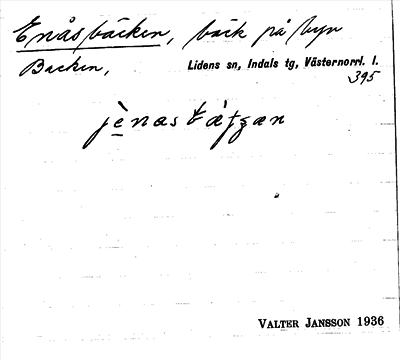 Enåsbäcken, bäck på byn
Backen, Lidens sn, Indals tg, Västernorrl. l.
395
VALTER JANSSON 1936